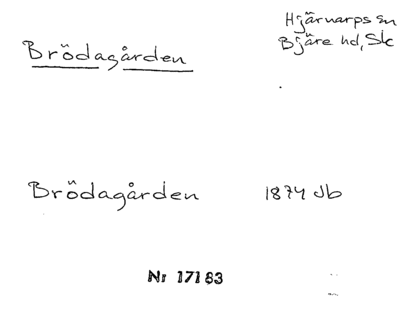 Brödagården
Hjärnarps sn
Bjäre hd, Sk
Brödagården 1874 Jb
Nr 17183